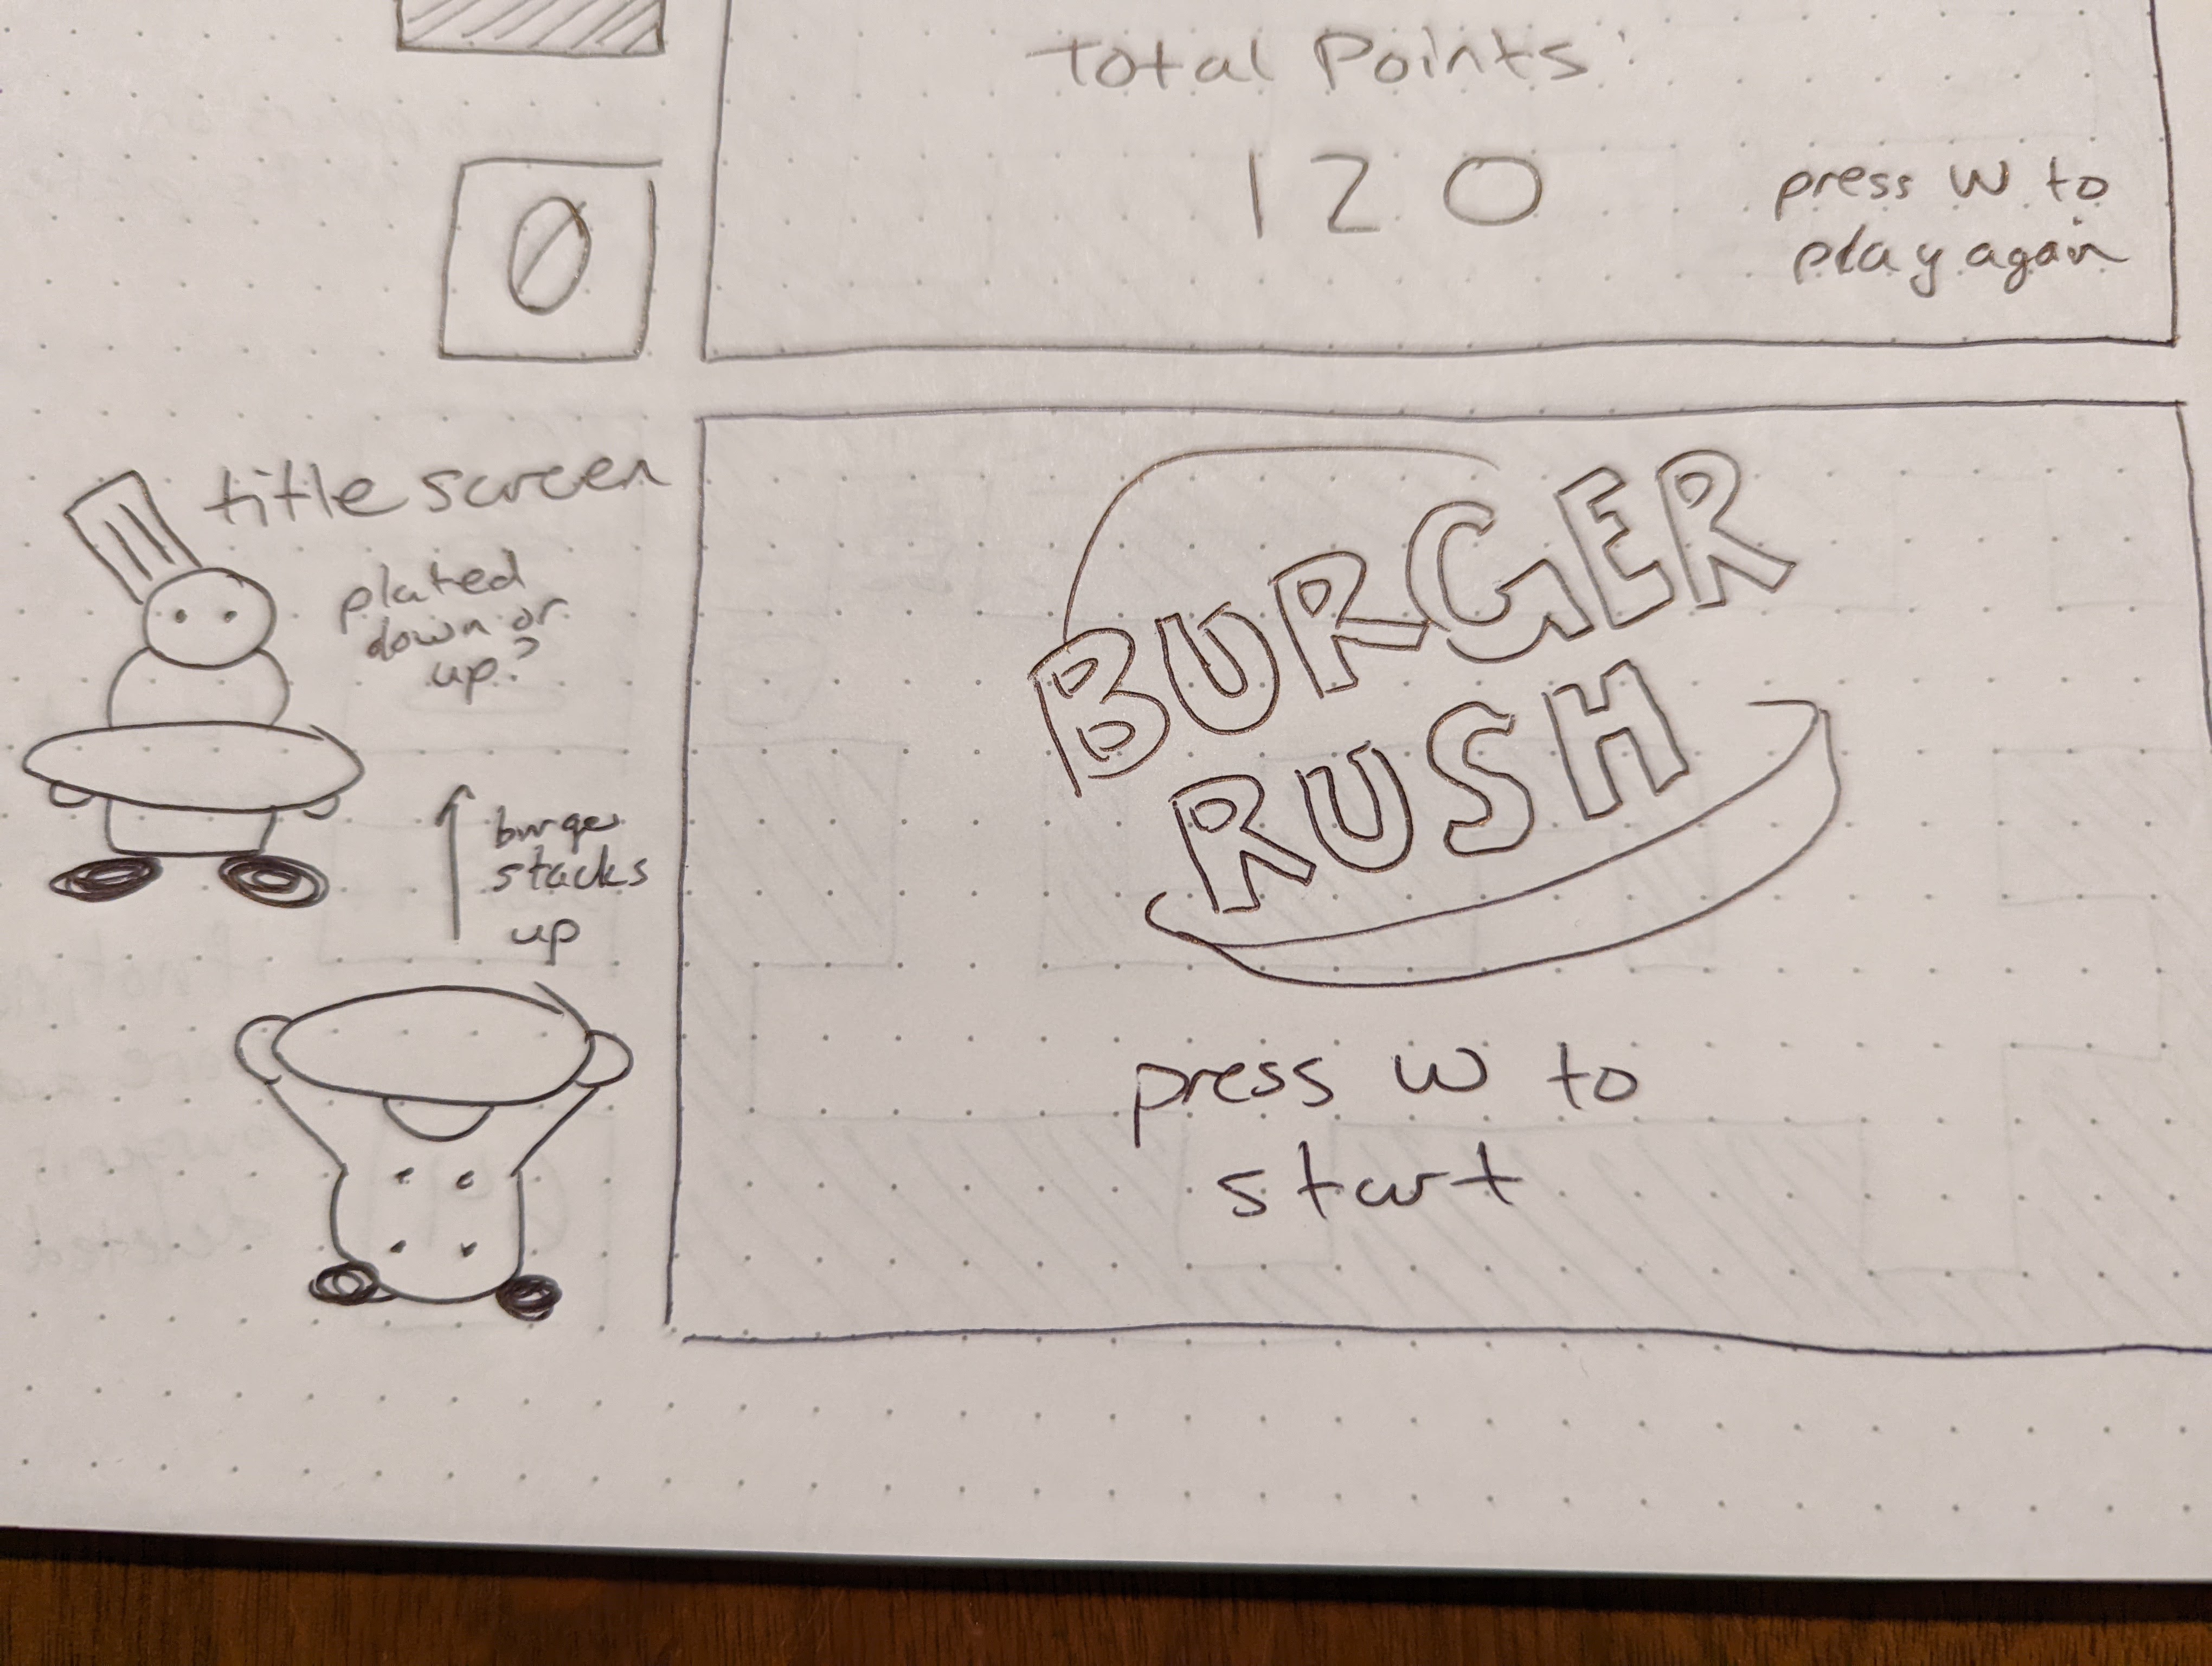 Total Points:
120
press W to
play again
0
title screen
plated
down or
up?
burger
stacks
up
BURGER
RUSH
press W to
start